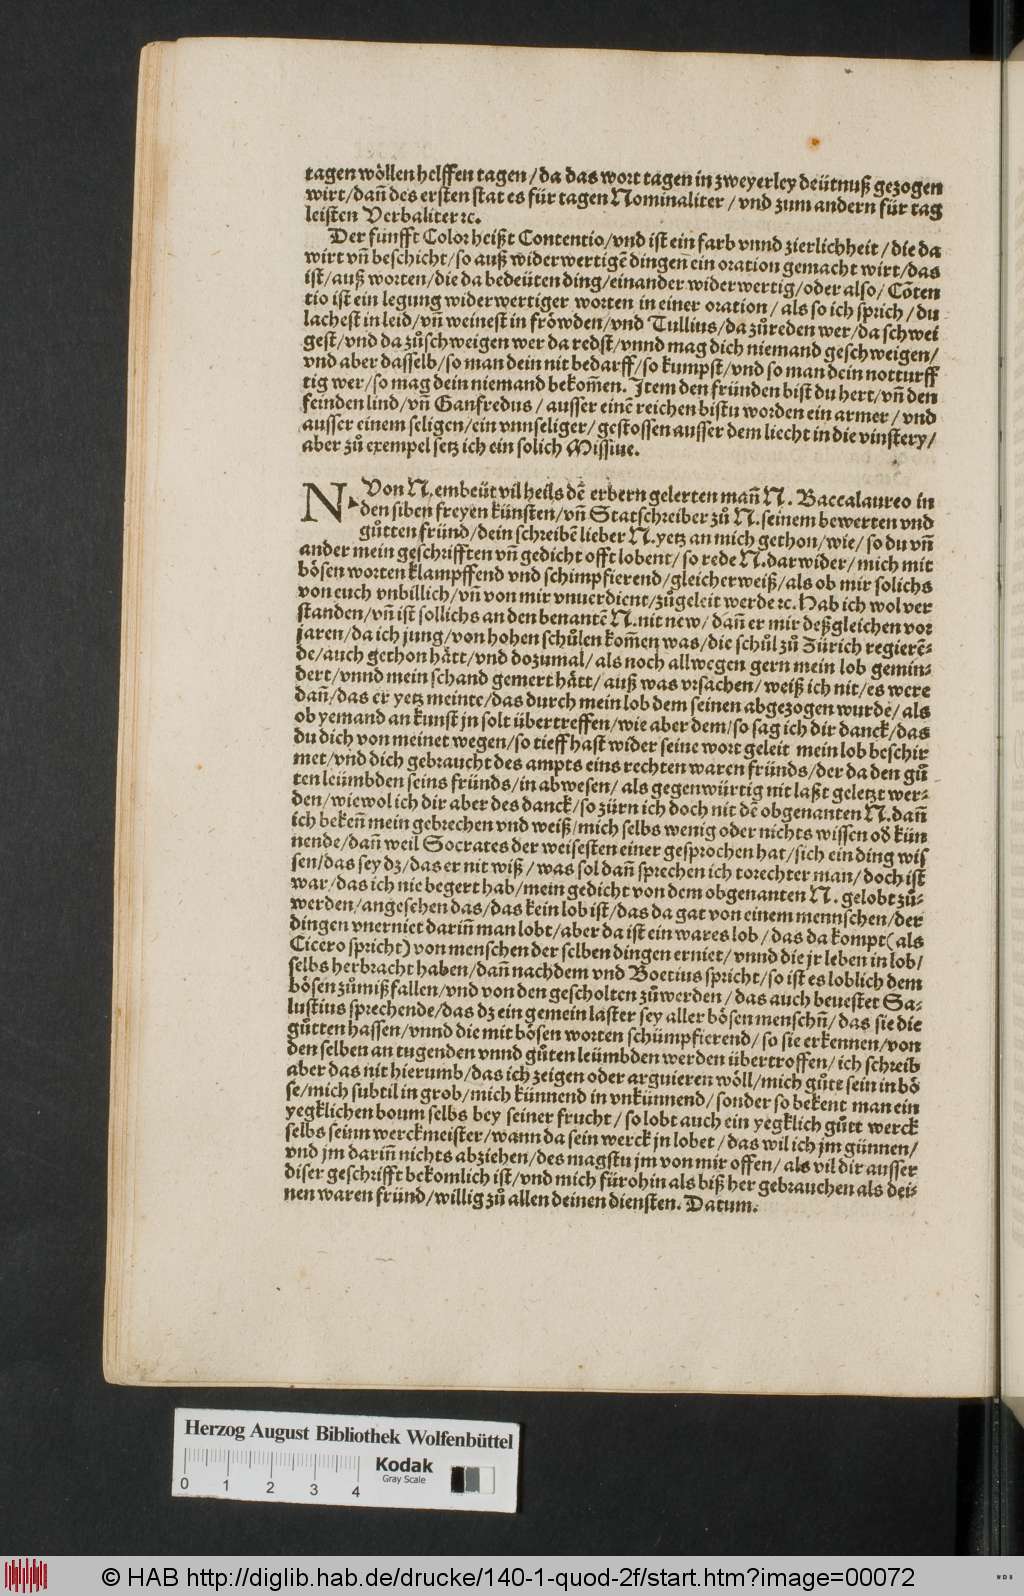 tagen wöllen helffen tagen / da das wort tagen in zweyerley deütnuß gezogen
wirt/dañ des ersten stat es für tagen Nominaliter / vnd zum andern für tag
leisten Verbaliter ꝛc.
Der fünfft Color heißt Contentio/vnd ist ein farb vnnd zierlichheit / die da
wirt vñ beschicht/so auß widerwertigē dingen ein oration gemacht wirt/das
ist/auß worten/die da bedeüten ding/einander widerwertig/oder also/ Cōten
tio ist ein legung widerwertiger worten in einer oration / als so ich sprich / du
lachest in leid/vñ weinest in fröwden/vnd Tullius/da zůreden wer/da schwei
gest/vnd da zůschweigen wer da redst/vnnd mag dich niemand geschweigen/
vnd aber dasselb/so man dein nit bedarff/so kumpst/vnd so man dein notturff
tig wer/so mag dein niemand bekom̃en. Item den fründen bist du hert/vñ den
feinden lind/vñ Ganfredus / ausser einē reichen bistu worden ein armer / vnd
ausser einem seligen/ein vnnseliger/gestossen ausser dem liecht in die vinstery/
aber zů exempel setz ich ein solich Missiue.
N. Von N. embeüt vil heils dē erbern gelerten mañ N. Baccalaureo in
den siben freyen künsten/vñ Statschreiber zů N. seinem bewerten vnd
gůtten fründ/dein schreibē lieber N. yetz an mich gethon/wie/ so du vñ
ander mein geschrifften vñ gedicht offt lobent/so rede N. darwider/mich mit
bösen worten klampffend vnd schimpfierend/gleicherweiß/als ob mir solichs
von euch vnbillich/vñ von mir vnuerdient/zůgeleit werde ꝛc. Hab ich wol ver
standen/vñ ist sollichs an den benantē N. nit new/ dañ er mir deßgleichen vor
jaren/da ich jung/von hohen schůlen kom̃en was/die schůl zů Zürich regierē-
de/auch gethon hätt/vnd dozumal/als noch allwegen gern mein lob gemin-
dert/vnnd mein schand gemert hätt/ auß was vrsachen/ weiß ich nit/es were
dañ/das er yetz meinte/das durch mein lob dem seinen abgezogen wurde/als
ob yemand an kunst jn solt übertreffen/wie aber dem/so sag ich dir danck/das
du dich von meinet wegen/so tieff hast wider seine wort geleit mein lob beschir
met/vnd dich gebraucht des ampts eins rechten waren fründs/der da den gů
ten leümbden seins fründs/in abwesen/ als gegenwürtig nit laßt geletzt wer-
den/wiewol ich dir aber des danck/so zürn ich doch nit dē obgenanten N. dañ
ich bekeñ mein gebrechen vnd weiß/mich selbs wenig oder nichts wissen od̕ kün
nende/dañ weil Socrates der weisesten einer gesprochen hat/sich ein ding wis
sen/das sey dz/das er nit wiß / was sol dañ sprechen ich torechter man/doch ist
war/das ich nie begert hab/mein gedicht von dem obgenanten N. gelobt zů-
werden/angesehen das/das kein lob ist/das da gat von einem mennschen/der
dingen vnerniet dariñ man lobt/aber da ist ein wares lob / das da kompt(als
Cicero spricht) von menschen der selben dingen erniet/ vnnd die jr leben in lob/
selbs herbracht haben/dañ nachdem vnd Boetius spricht/so ist es loblich dem
bösen zůmißfallen/vnd von den gescholten zůwerden / das auch beuestet Sa-
lustius sprechende/das dz ein gemein laster sey aller bösen menschñ/das sie die
gůtten hassen/vnnd die mit bösen worten schümpfierend/so sie erkennen/von
den selben an tugenden vnnd gůten leümbden werden übertroffen/ ich schreib
aber das nit hierumb/das ich zeigen oder arguieren wöll/mich gůte sein in bö
se/mich subtil in grob/mich künnend in vnkünnend/sonder so bekent man ein
yegklichen boum selbs bey seiner frucht/ so lobt auch ein yegklich gůtt werck
selbs seinn werckmeister/wann da sein werck jn lobet / das wil ich jm günnen/
vnd jm dariñ nichts abziehen/des magstu jm von mir offen/ als vil dir ausser
diser geschrifft bekomlich ist/vnd mich fürohin als biß her gebrauchen als dei-
nen waren fründ/willig zů allen deinen diensten. Datum.
Herzog August Bibliothek Wolfenbüttel
Kodak
Gray Scale
0 1 2 3 4
© HAB http://diglib.hab.de/drucke/140-1-quod-2f/start.htm?image=00072